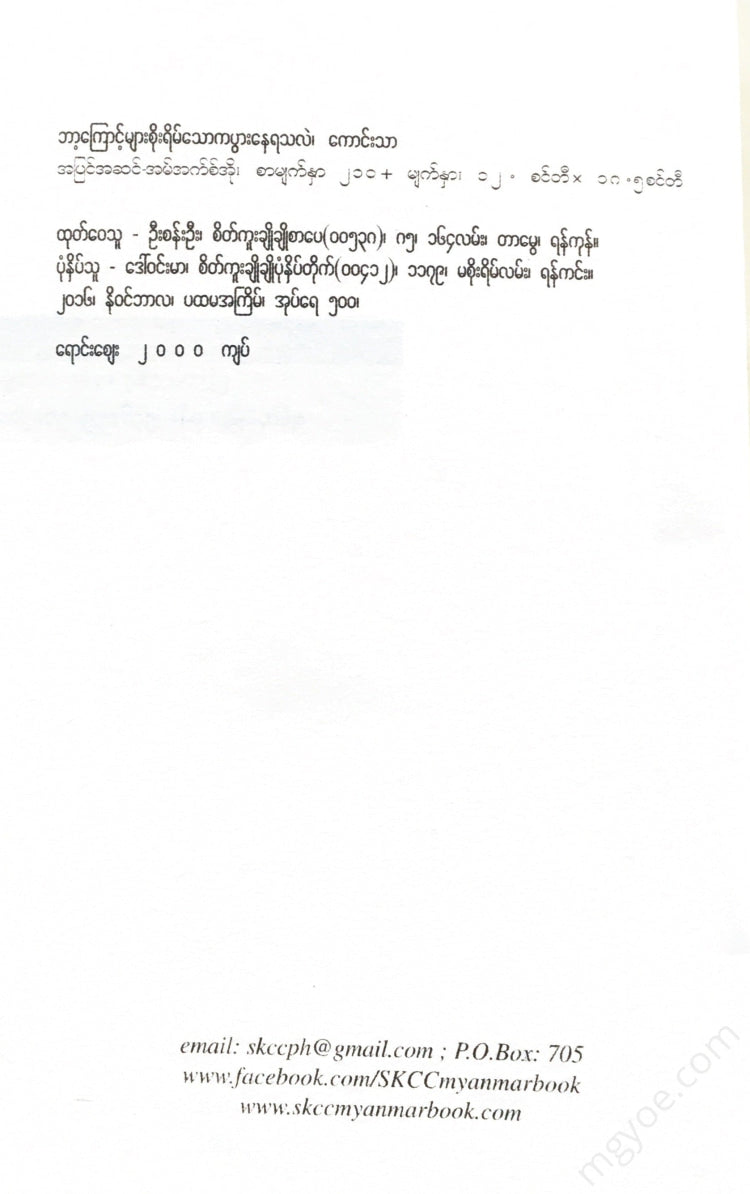 ဘာ့ကြောင့်များစိုးရိမ်သောကပွားနေရသလဲ၊ ကောင်းသာ
အပြင်အဆင်-အမ်အက်စ်အို၊ စာမျက်နှာ ၂၁၀ + မျက်နှာ၊ ၁၂ . စင်တီ × ၁၈ .၅စင်တီ
ထုတ်ဝေသူ - ဦးစန်းဦး၊ စိတ်ကူးချိုချိုစာပေ(၀၀၅၃၈)၊ ၈၅၊ ၁၆၄လမ်း၊ တာမွေ၊ ရန်ကုန်။
ပုံနှိပ်သူ - ဒေါ်ဝင်းမာ၊ စိတ်ကူးချိုချိုပုံနှိပ်တိုက်(၀၀၄၁၂)၊ ၁၁၇၉၊ မစိုးရိမ်လမ်း၊ ရန်ကင်း။
၂၀၁၆၊ နိုဝင်ဘာလ၊ ပထမအကြိမ်၊ အုပ်ရေ ၅၀၀၊
ရောင်းဈေး ၂ ၀ ၀ ၀ ကျပ်
email: skccph@gmail.com ; P.O.Box: 705
www.facebook.com/SKCCmyanmarbook
www.skccmyanmarbook.com
mgyoe.com